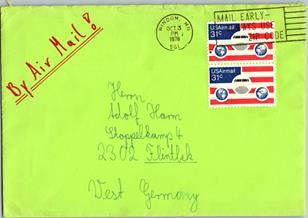 By Air Mail!
WINDOM, MN
OCT 3
PM
1978
561
MAIL EARLY-
ALWAYS USE
ZIP CODE
USAirmail
31c
USAirmail
31c
Herrn
Adolf Harm
Stoppelkamp 4
2302 Flintbek
West Germany